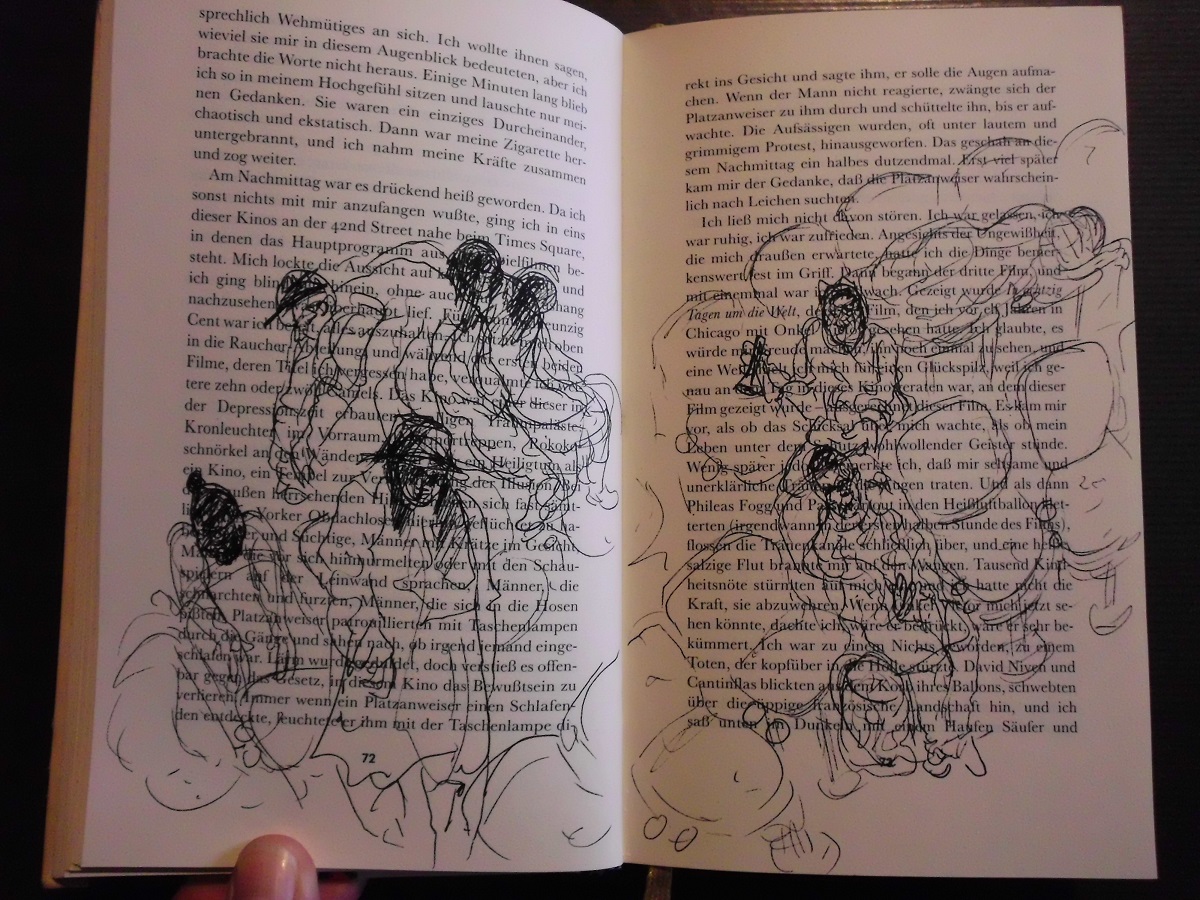 sprechlich Wehmütiges an sich. Ich wollte ihnen sagen,
wieviel sie mir in diesem Augenblick bedeuteten, aber ich
brachte die Worte nicht heraus. Einige Minuten lang blieb
ich so in meinem Hochgefühl sitzen und lauschte nur mei-
nen Gedanken. Sie waren ein einziges Durcheinander,
chaotisch und ekstatisch. Dann war meine Zigarette her-
untergebrannt, und ich nahm meine Kräfte zusammen
und zog weiter.
Am Nachmittag war es drückend heiß geworden. Da ich
sonst nichts mit mir anzufangen wußte, ging ich in eins
dieser Kinos an der 42nd Street nahe beim Times Square,
in denen das Hauptprogramm aus be-
steht. Mich lockte die Aussicht auf und
ich ging hinein, ohne auch
nachzusehen, überhaupt lief.
Cent war ich bereit, alles auszuhalten. oben
in die Raucher-Abteilung, und während der ersten beiden
Filme, deren Titel ich vergessen habe, verqualmte ich wei-
tere zehn oder zwölf Camels. Das Kino war einer dieser in
der Depressionszeit erbauten Traumpaläste:
Kronleuchter im Vorraum, Rokoko-
schnörkel an den Wänden ein Heiligtum als
ein Kino, ein Tempel zur der Illusion. Bei
sich fast sämt-
liche Yorker Obdachlose hierher geflüchtet zu ha-
ben. und Süchtige, Männer mit Krätze im Gesicht,
Männer, die vor sich hinmurmelten oder mit den Schau-
spielern auf der Leinwand sprachen, Männer, die
schnarchten und furzten, Männer, die sich in die Hosen
pißten. Platzanweiser patrouillierten mit Taschenlampen
durch die Gänge und sahen nach, ob irgend jemand einge-
schlafen war. Lärm wurde geduldet, doch verstieß es offen-
bar gegen das Gesetz, in diesem Kino das Bewußtsein zu
verlieren. Immer wenn ein Platzanweiser einen Schlafen-
den entdeckte, leuchtete er ihm mit der Taschenlampe di-
72
rekt ins Gesicht und sagte ihm, er solle die Augen aufma-
chen. Wenn der Mann nicht reagierte, zwängte sich der
Platzanweiser zu ihm durch und schüttelte ihn, bis er auf-
wachte. Die Aufsässigen wurden, oft unter lautem und
grimmigem Protest, hinausgeworfen. Das geschah an die-
sem Nachmittag ein halbes dutzendmal. Erst viel später
kam mir der Gedanke, daß die Platzanweiser wahrschein-
lich nach Leichen suchten.
Ich ließ mich nicht davon stören. Ich war gelassen, ich
war ruhig, ich war zufrieden. Angesichts der Ungewißheit,
die mich draußen erwartete, hatte ich die Dinge bemer-
kenswert fest im Griff. Dann begann der dritte Film, und
mit einemmal war ich wach. Gezeigt wurde In achtzig
Tagen um die Welt, der Film, den ich vor elf Jahren in
Chicago mit Onkel gesehen hatte. Ich glaubte, es
würde mir Freude machen, ihn noch einmal zu sehen, und
eine Weile hielt ich mich für einen Glückspilz, weil ich ge-
nau an dem Tag in dieses Kino geraten war, an dem dieser
Film gezeigt wurde – ausgerechnet dieser Film. Es kam mir
vor, als ob das Schicksal über mich wachte, als ob mein
Leben unter dem Schutz wohlwollender Geister stünde.
Wenig später jedoch merkte ich, daß mir seltsame und
unerklärliche Tränen in die Augen traten. Und als dann
Phileas Fogg und Passepartout in den Heißluftballon klet-
terten (irgendwann in der ersten halben Stunde des Films),
flossen die Tränenkanäle schließlich über, und eine heiße
salzige Flut brannte mir auf den Wangen. Tausend Kind-
heitsnöte stürmten auf mich ein, und ich hatte nicht die
Kraft, sie abzuwehren. Wenn Onkel Victor mich jetzt se-
hen könnte, dachte ich, wäre er bedrückt, wäre er sehr be-
kümmert. Ich war zu einem Nichts geworden, zu einem
Toten, der kopfüber in die Hölle stürzte. David Niven und
Cantinflas blickten aus dem Korb ihres Ballons, schwebten
über die üppige französische Landschaft hin, und ich
saß unten im Dunkeln mit einem Haufen Säufer und